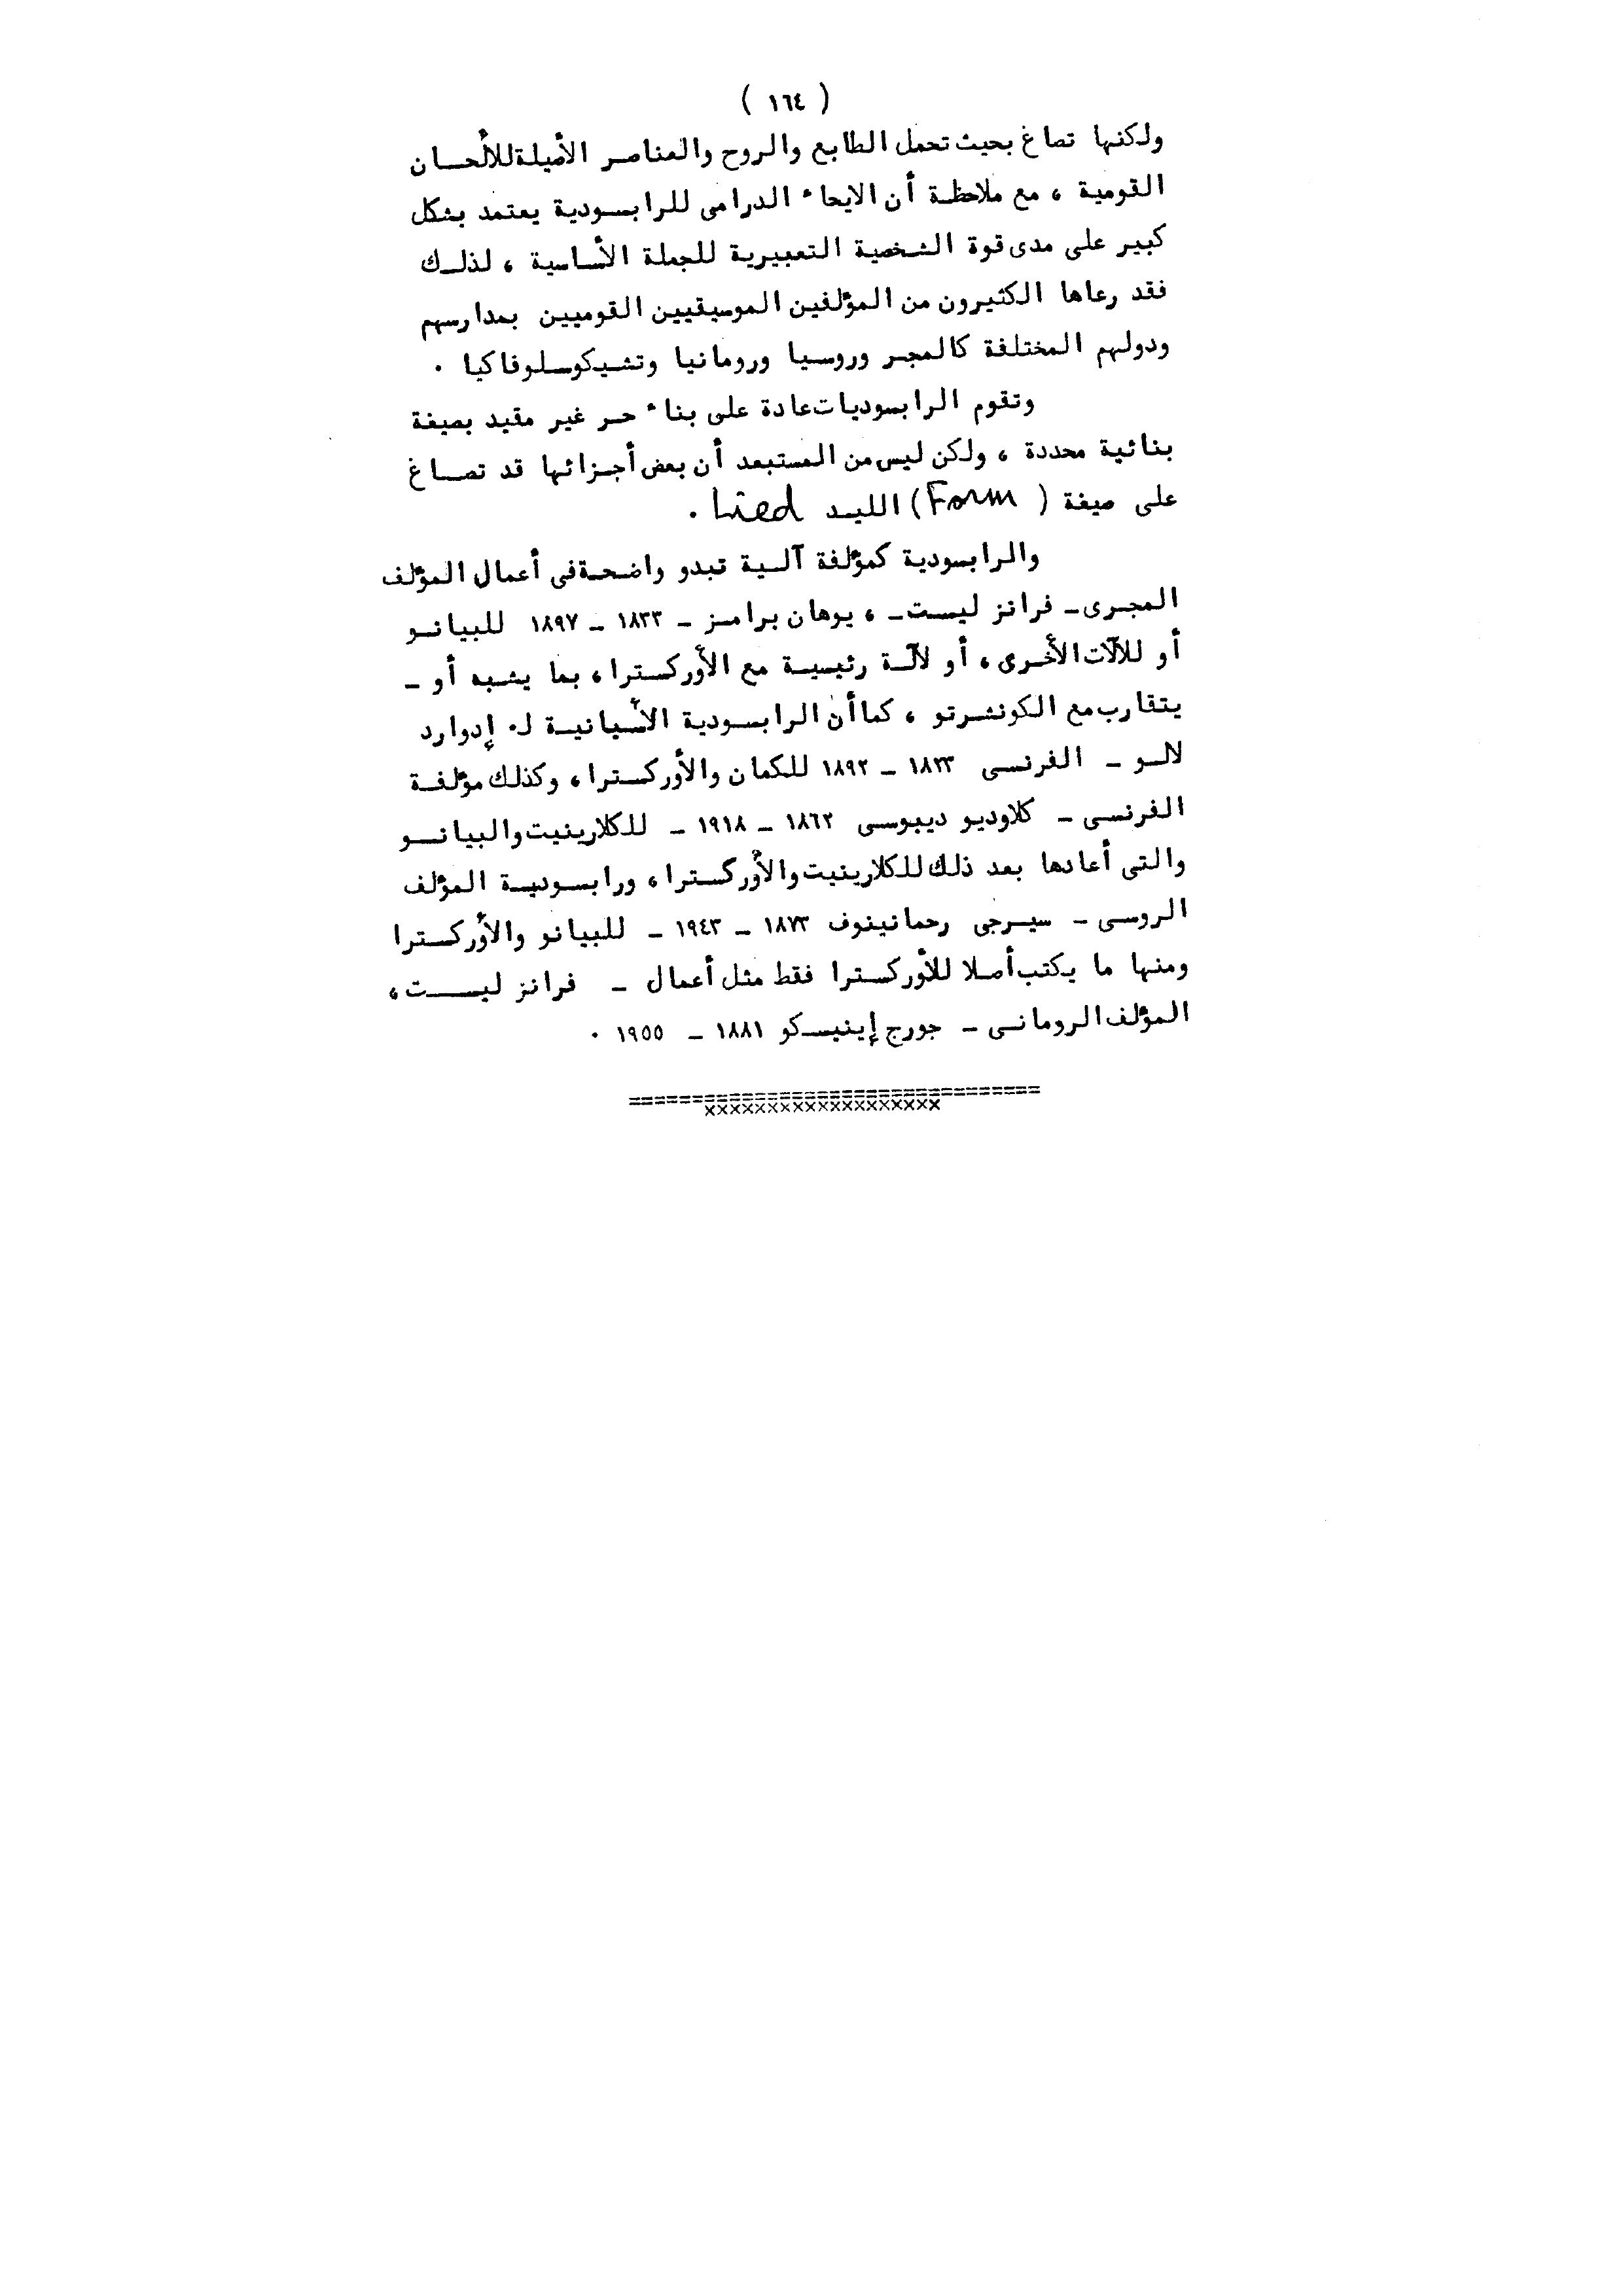 ( ١٦٤ )
ولكنها تصاغ بحيث تحمل الطابع والروح والعناصر الأصيلة للألحــان
القومية ، مع ملاحظـة أن الايحاء الدرامى للرابسودية يعتمد بشكل
كبير على مدى قوة الشخصية التعبيرية للجملة الأساسية ، لذلـك
فقد رعاها الكثيرون من المؤلفين الموسيقيين القوميين بمدارسهم
ودولهم المختلفة كالمجر وروسيا ورومانيا وتشيكوسلوفاكيا ٠
وتقوم الرابسوديات عادة على بناء حـر غير مقيد بصيغة
بنائية محددة ، ولكن ليس من المستبعد أن بعض أجزائها قد تصـاغ
على صيغة ( Form ) الليـد Lied ٠
والرابسودية كمؤلفة آلـية تبدو واضحـة فى أعمال المؤلف
المجـرى ـ فرانز ليست ـ ، يوهان برامـز ـ ١٨٣٣ ـ ١٨٩٧ للبيانـو
أو للآلات الأخرى ، أو لآلـة رئيسيـة مع الأوركسترا ، بما يشبه أو ـ
يتقارب مع الكونشرتو ، كما أن الرابسـودية الأسبانيـة لـ٠ إدوارد
لالـو ـ الفرنسى ١٨٢٣ ـ ١٨٩٢ للكمان والأوركسترا ، وكذلك مؤلفـة
الفرنسى ـ كلاوديو ديبوسى ١٨٦٢ ـ ١٩١٨ ـ للكلارينيت والبيانـو
والتى أعادها بعد ذلك للكلارينيت والأوركسترا ، ورابسـوديـة المؤلف
الروسى ـ سيـرجى رحمانينوف ١٨٧٣ ـ ١٩٤٣ ـ للبيانو والأوركسترا
ومنها ما يكتب أصلا للأوركسترا فقط مثل أعمال ـ فرانز ليســت ،
المؤلف الرومانى ـ جورج إينيسكو ١٨٨١ ـ ١٩٥٥ ٠
=================================
xxxxxxxxxxxxxxxxxxx